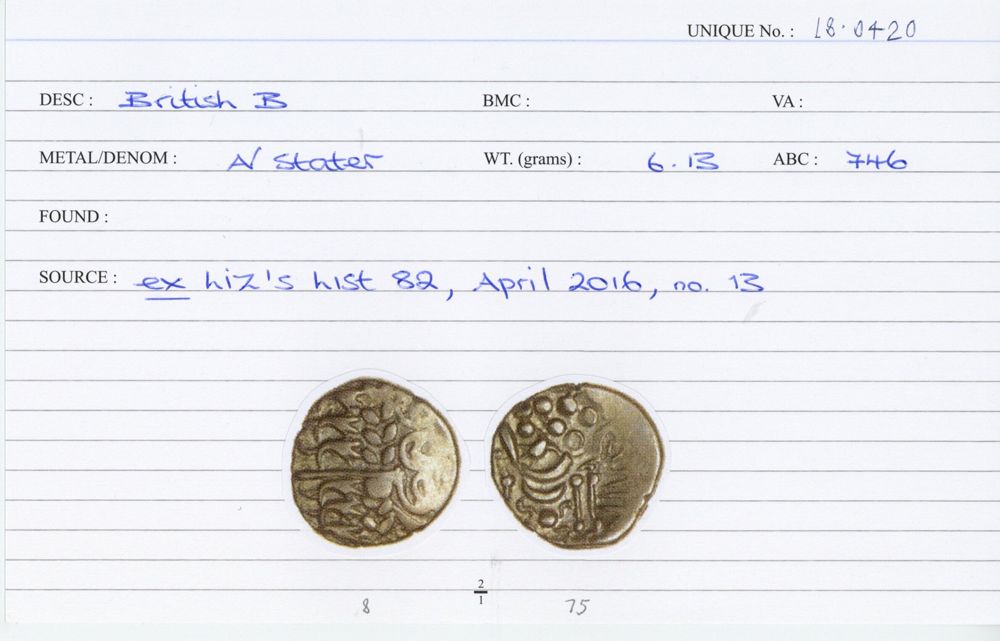 UNIQUE No. : 18.0420
DESC : British B BMC : VA :
METAL/DENOM : N Stater WT. (grams) : 6.13 ABC : 746
FOUND :
SOURCE : ex Liz's List 82, April 2016, no. 13
2
1
8 75